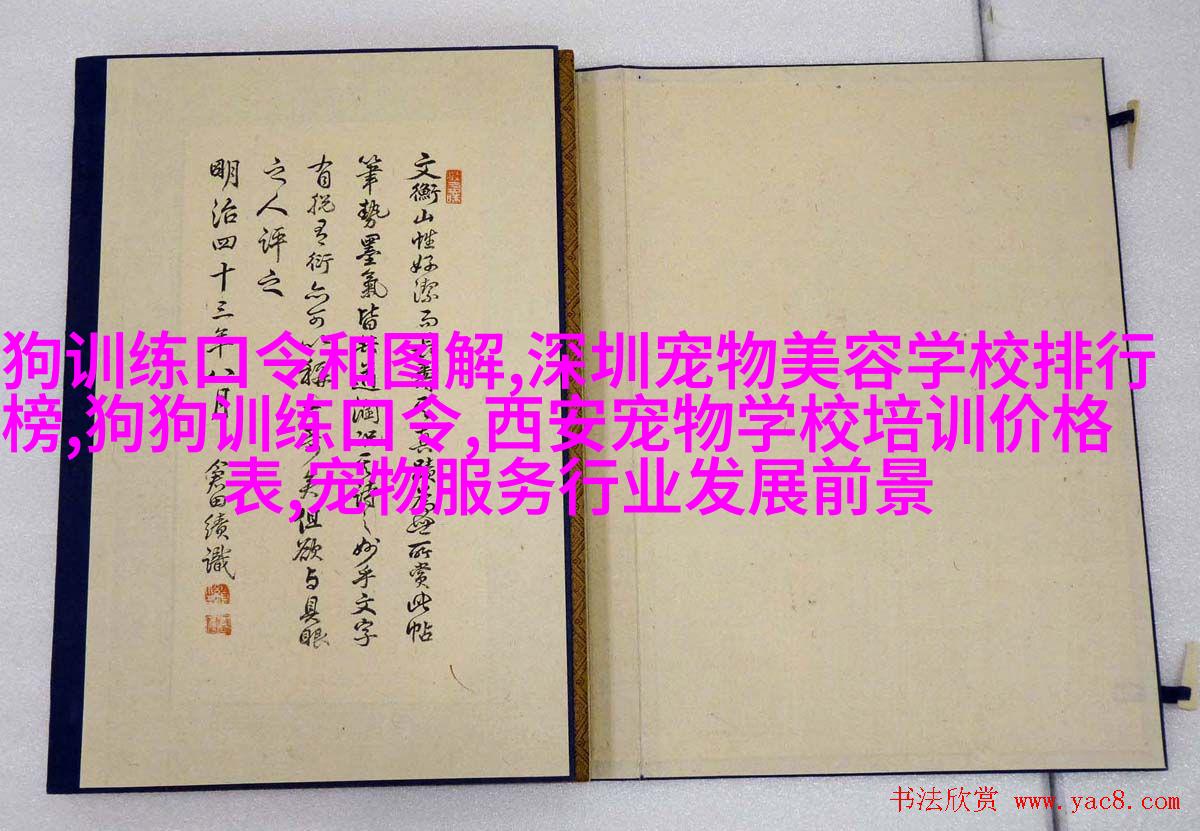 狗训练口令和图解,深圳宠物美容学校排行
榜,狗狗训练口令,西安宠物学校培训价格
表,宠物服务行业发展前景
文衡山性好潔而真蹟所赏此帖
筆勢墨氣皆潤詩之妙乎文字
有衍亦可但欲与具眼
之人評之
明治四十三年八月 倉田績識
书法欣赏 www.yac8.com